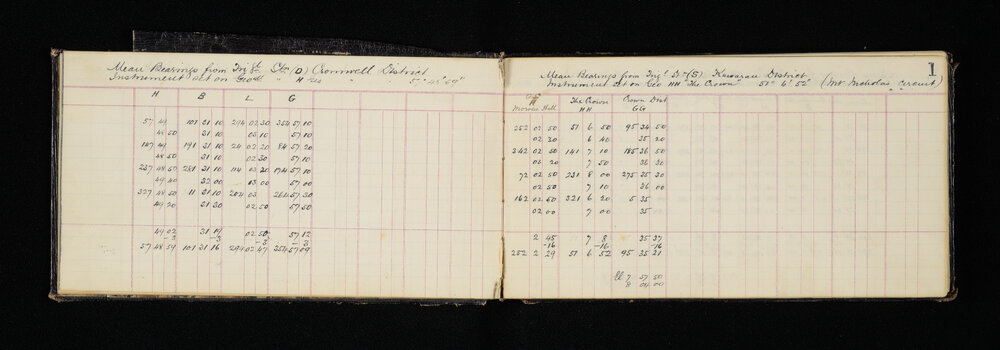 Mean Bearings from Trig Stn (D) Cromwell District
Instrument set on Geod
H B L G
57 49 101 31 10 294 02 30 354 57 10
48 50 31 10 03 10 57 10
147 49 191 31 10 24 02 20 84 57 20
48 50 31 10 02 30 57 10
237 48 50 281 31 10 114 03 20 174 57 10
49 40 32 00 03 00 57 00
327 48 50 11 31 10 204 03 264 57 30
49 20 31 30 02 50 57 50
49 02 31 19 02 50 57 12
-3 -3 -3 -3
57 48 59 101 31 16 294 02 47 354 57 09
1
Mean Bearings from Trig Stn (S) Kawarau District
Instrument set on Geo HH "The Crown" 51° 6' 52" (Mt Nicholas Circuit)
The Crown Crown Dist
HH GG
252 02 50 51 6 50 95 34 50
02 30 6 40 35 20
342 02 50 141 7 10 185 36 50
03 20 7 50 36 30
72 02 50 231 8 00 275 35 30
02 50 7 10 36 00
162 02 50 321 6 20 5 35
02 00 7 00 35
2 45 7 8 35 37
-16 -16 -16
252 2 29 51 6 52 95 35 21
7 57 50
8 04 00